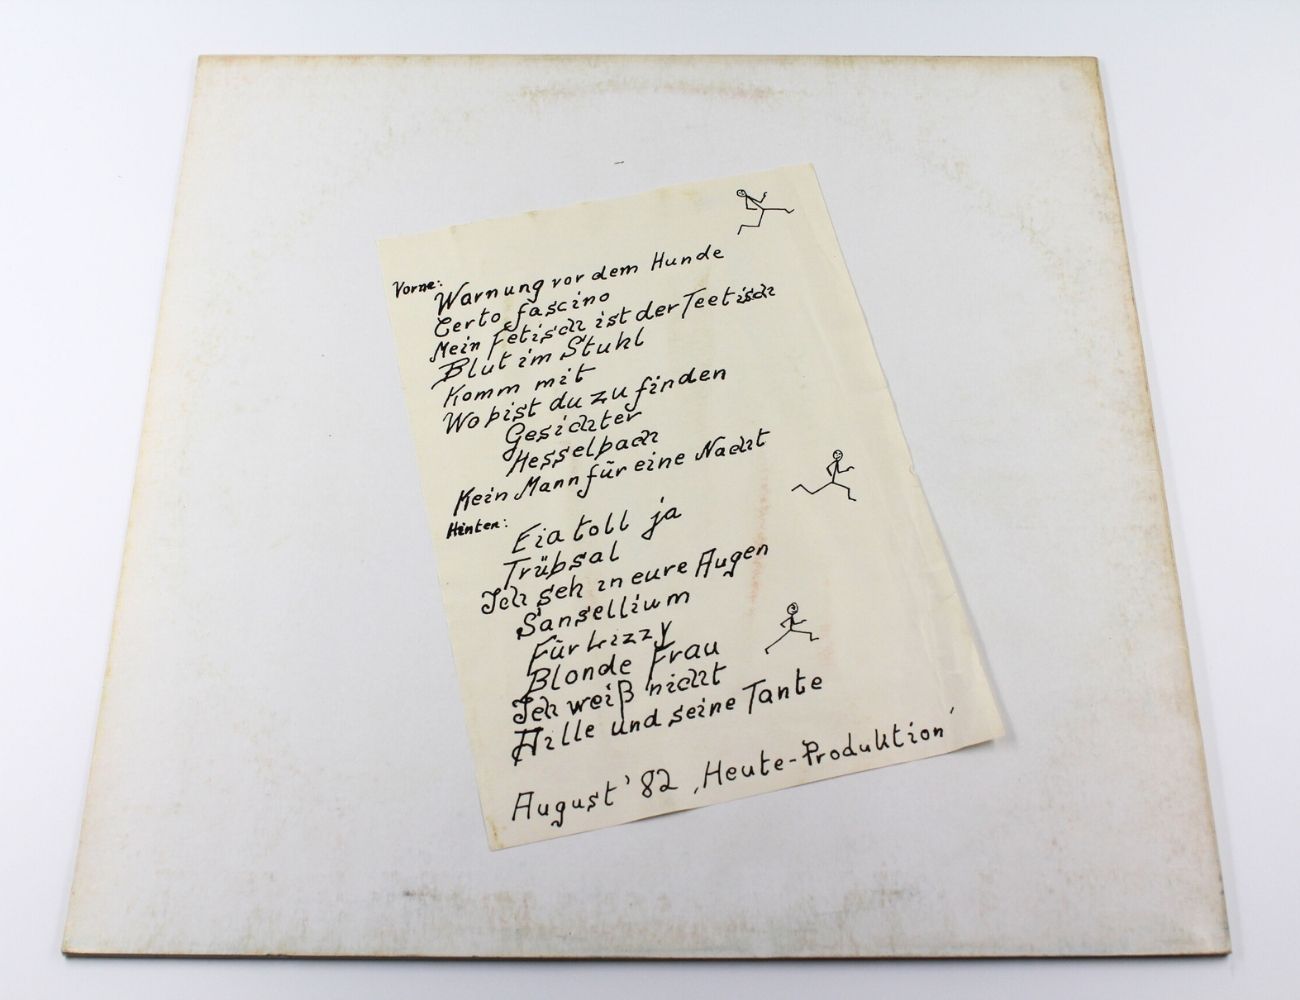 Vorne:
Warnung vor dem Hunde
Certo fascino
Mein Fetisch ist der Teetisch
Blut im Stuhl
Komm mit
Wo bist du zu finden
Gesichter
Hesselbach
Kein Mann für eine Nacht
Hinten:
Eia toll ja
Trübsal
Ich seh in eure Augen
Sansellium
Für Lizzy
Blonde Frau
Ich weiß nicht
Hille und seine Tante
August '82 ‚Heute-Produktion'